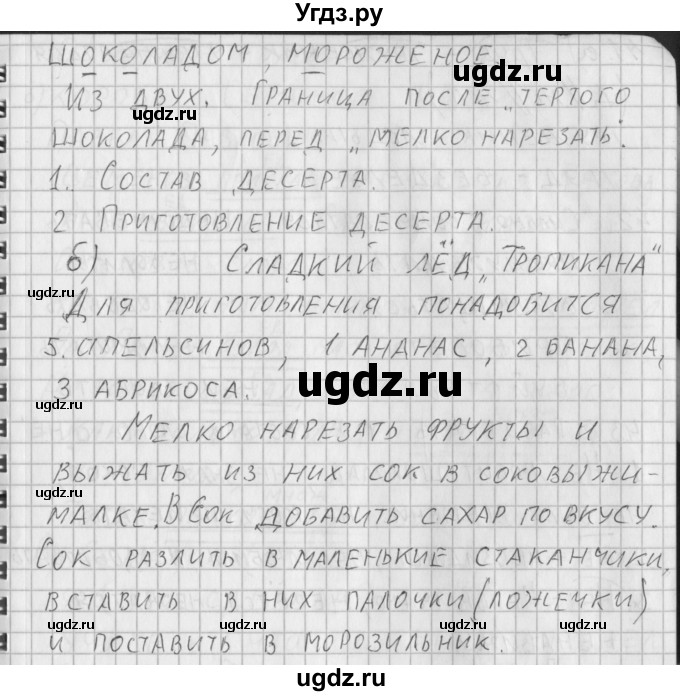 Угдз.ру
ШОКОЛАДОМ, МОРОЖЕНОЕ
ugdz.ru
ИЗ ДВУХ. ГРАНИЦА ПОСЛЕ „ТЕРТОГО
ugdz.ru
ШОКОЛАДА, ПЕРЕД „МЕЛКО НАРЕЗАТЬ".
1. СОСТАВ ДЕСЕРТА.
2. ПРИГОТОВЛЕНИЕ ДЕСЕРТА.
ugdz.ru
б) СЛАДКИЙ ЛЁД „ТРОПИКАНА"
ugdz.ru
ДЛЯ ПРИГОТОВЛЕНИЯ ПОНАДОБИТСЯ
5. АПЕЛЬСИНОВ, 1 АНАНАС, 2 БАНАНА,
ugdz.ru
3 АБРИКОСА.
ugdz.ru
МЕЛКО НАРЕЗАТЬ ФРУКТЫ И
ВЫЖАТЬ ИЗ НИХ СОК В СОКОВЫЖИ-
ugdz.ru
МАЛКЕ. В СОК ДОБАВИТЬ САХАР ПО ВКУСУ.
ugdz.ru
СОК РАЗЛИТЬ В МАЛЕНЬКИЕ СТАКАНЧИКИ,
ВСТАВИТЬ В НИХ ПАЛОЧКИ (ЛОЖЕЧКИ)
ugdz.ru ugdz.ru ugdz.ru
И ПОСТАВИТЬ В МОРОЗИЛЬНИК.
ugdz.ru